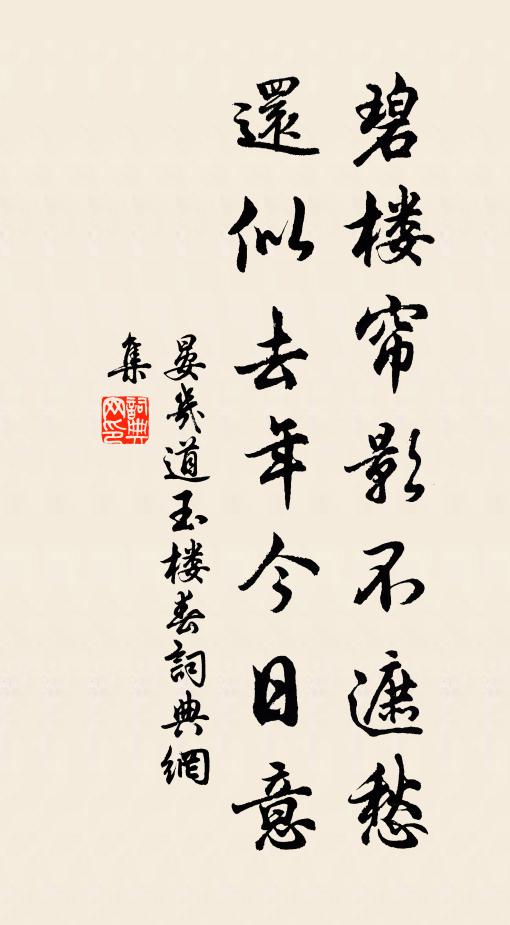 碧楼帘影不遮愁
還似去年今日意
晏幾道玉楼春詞典網
集
詞典网印